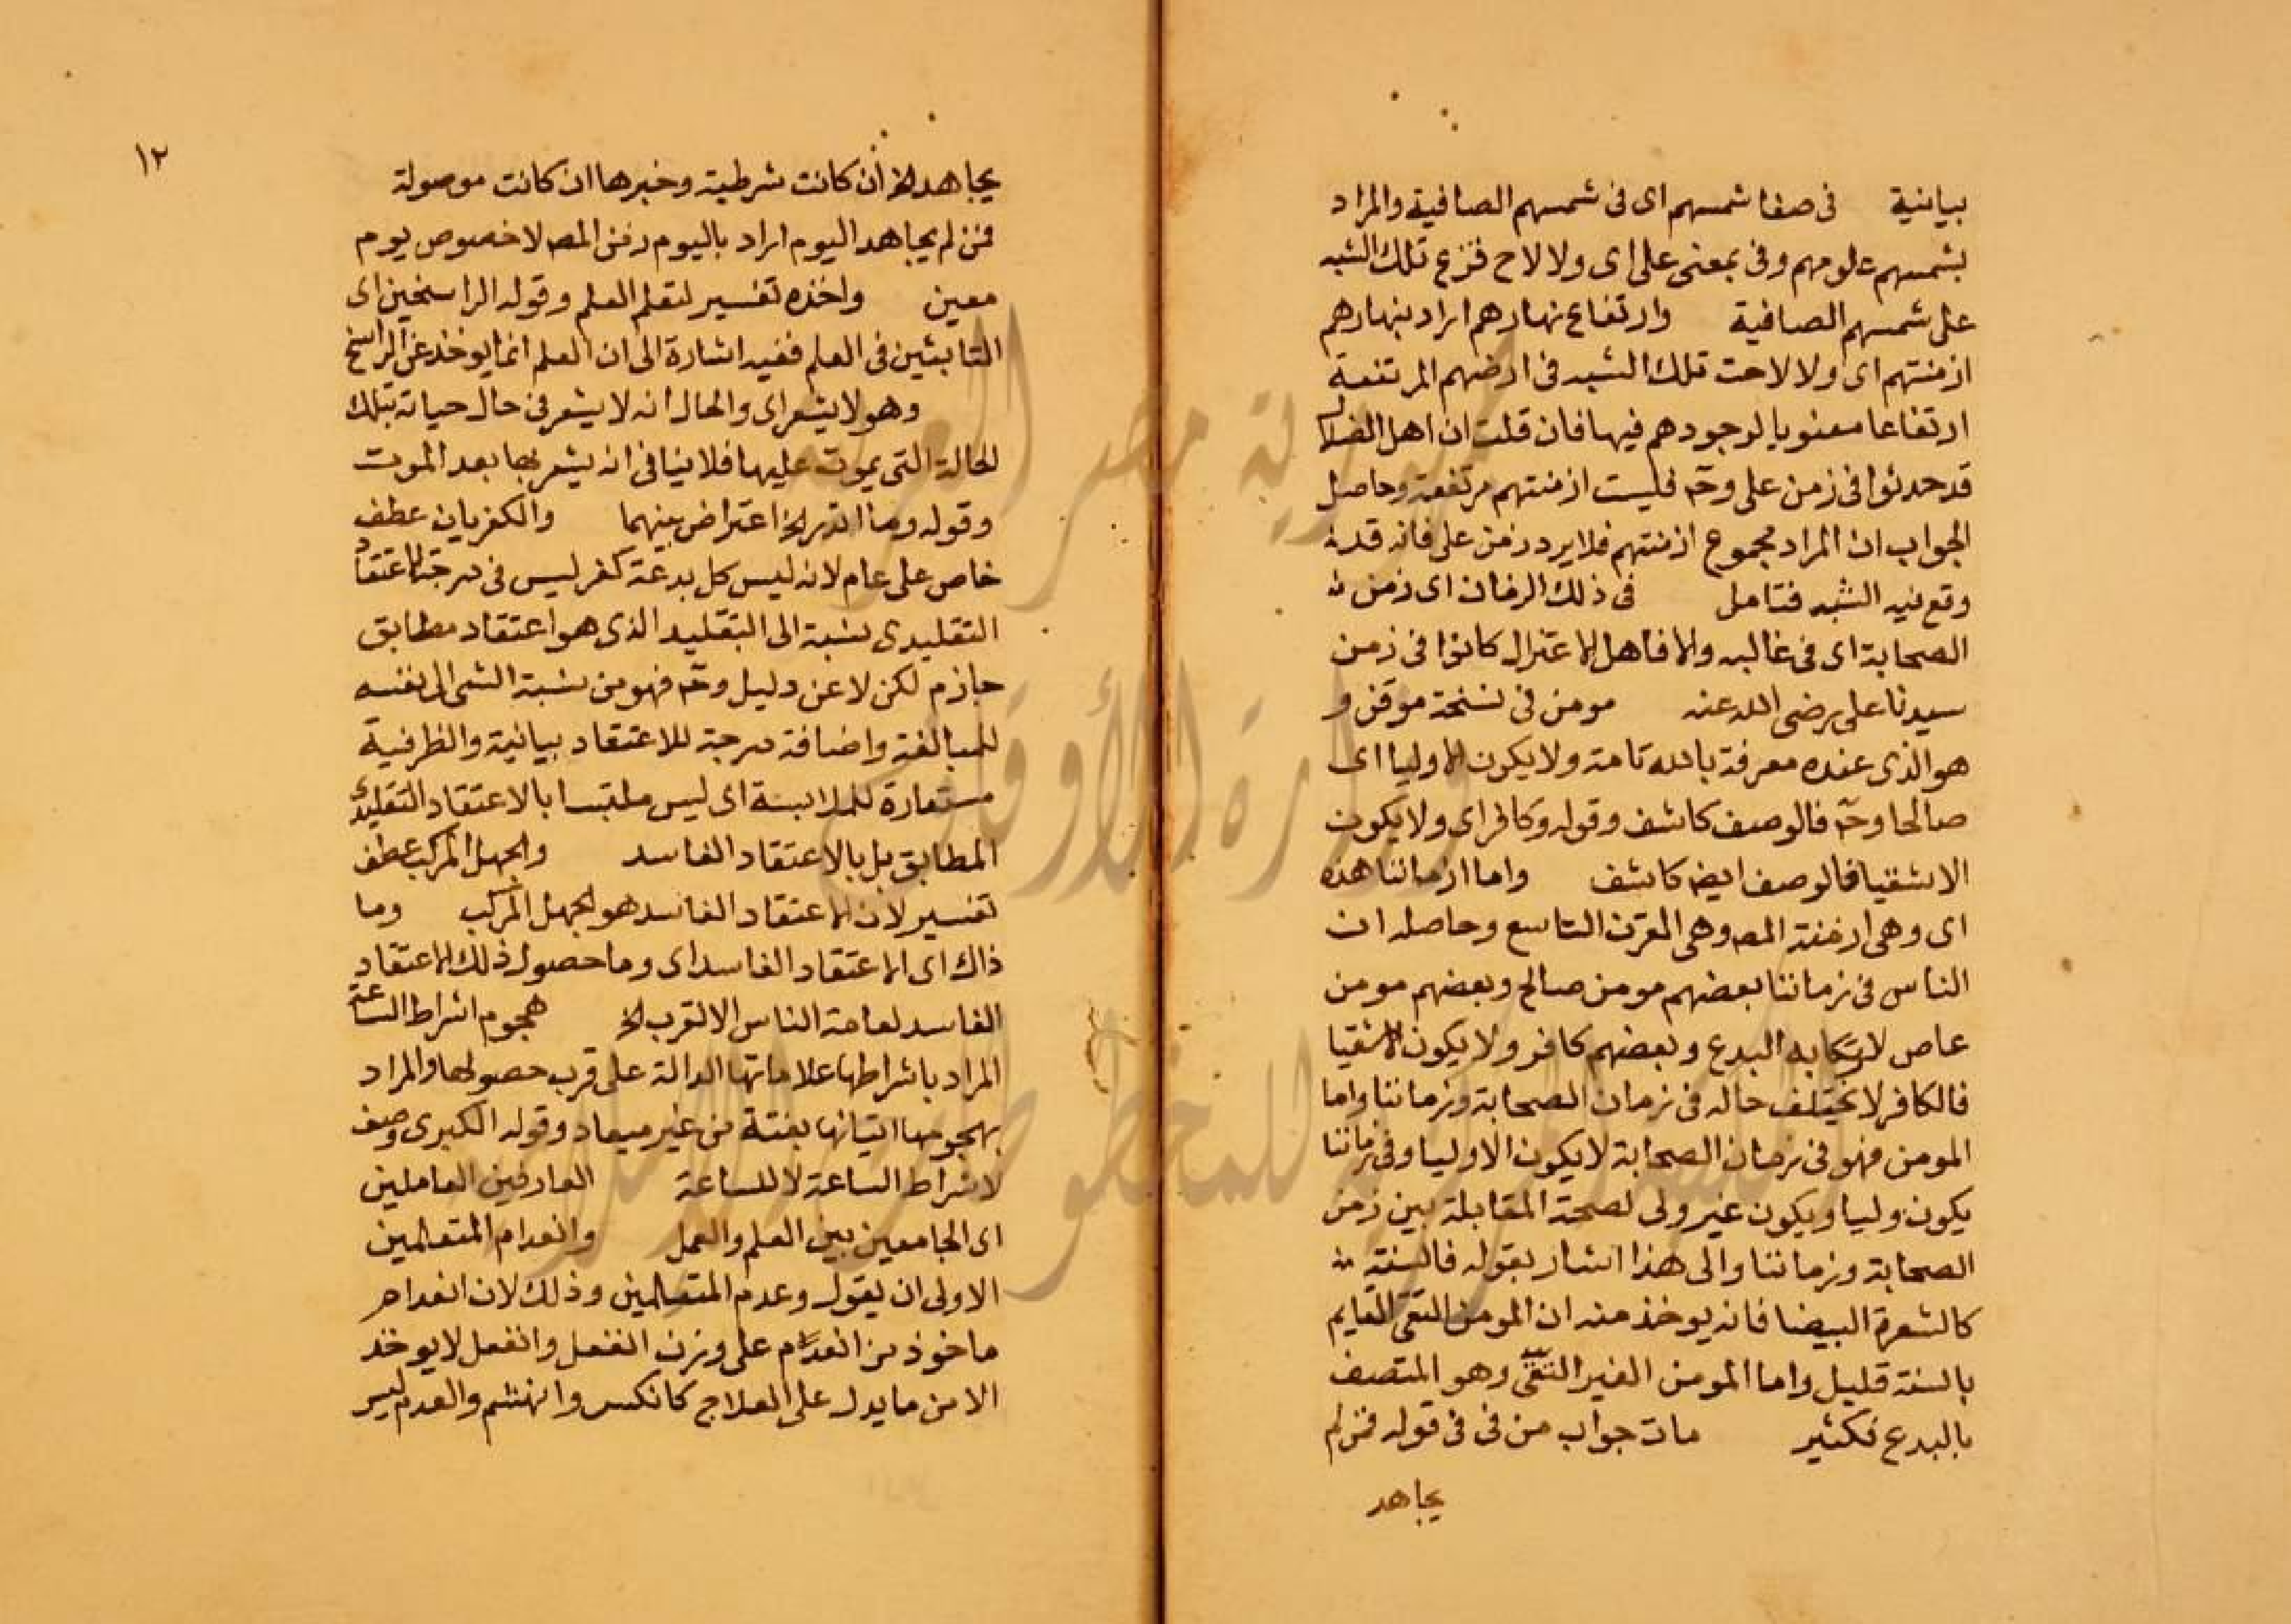 بيانية في صفا شمسهم اى فى شمسهم الصافية والمراد
بشمسهم علومهم وفى بمعنى على اى ولا لاح قزع تلك الشبه
على شمسهم الصافية وارتفاع نهارهم اراد بنهارهم
ازمنتهم اى ولا لاحت تلك الشبه فى ارضهم المرتفعة
ارتفاعا معنويا لوجودهم فيها فان قلت ان اهل الضلال
قد حدثوا فى زمن على وح فليست ازمنتهم مرتفعة وحاصل
الجواب ان المراد مجموع ازمنتهم فلا يرد زمن على فانه قد
وقع فيه الشبه فتامل فى ذلك الزمان اى زمن
الصحابة اى فى غالبه والا فاهل الاعتزال كانوا فى زمن
سيدنا على رضى الله عنه مومن فى نسخة موقن و
هو الذى عنده معرفة بالله تامة ولا يكون الا وليا اى
صالحا وح فالوصف كاشف وقوله وكافر اى ولا يكون
الا شقيا فالوصف ايض كاشف واما ازماننا هذه
اى وهى ازمنة المص وهى القرن التاسع وحاصله ان
الناس فى زماننا بعضهم مومن صالح وبعضهم مومن
عاص لارتكابه البدع وبعضهم كافر ولا يكون الا شقيا
فالكافر لا يختلف حاله فى زمان الصحابة وزماننا واما
المومن فهو فى زمان الصحابة لا يكون الا وليا وفى زماننا
يكون وليا ويكون غير ولى لصحة المقابلة بين زمن
الصحابة وزماننا والى هذا اشار بقوله فالسنة
كالشعرة البيضا فانه يوخذ منه ان المومن التقى القايم
بالسنة قليل واما المومن الغير التقى وهو المتصف
بالبدع فكثير مات جواب من فى فى قوله فمن لم
يجاهد
١٢
يجاهد الخ ان كانت شرطية وخبرها ان كانت موصولة
فمن لم يجاهد اليوم اراد باليوم زمن المص لا خصوص يوم
معين واخذه تفسير لتعلم العلم وقوله الراسخين اى
الثابتين فى العلم ففيه اشارة الى ان العلم انما يوخذ عن الراسخ
وهو لا يشعر اى والحال انه لا يشعر فى حال حياته بتلك
الحالة التى يموت عليها فلا ينافى انه يشعر بها بعد الموت
وقوله وما الخ اعتراض بينهما والكفريات عطف
خاص على عام لانه ليس كل بدعة كفر ليس فى درجة الاعتقاد
التقليدى نسبة الى التقليد الذى هو اعتقاد مطابق
جازم لكن لا عن دليل وح فهو من نسبة الشى الى نفسه
للمبالغة واضافة درجة للاعتقاد بيانية والظرفية
مستعارة للملابسة اى ليس ملتبسا بالاعتقاد التقليدى
المطابق بل بالاعتقاد الفاسد والجهل المركب عطف
تفسير لان الاعتقاد الفاسد هو الجهل المركب وما
ذاك اى الاعتقاد الفاسد اى وما حصول ذلك الاعتقاد
الفاسد لعامة الناس الا لقرب الخ هجوم اشراط الساعة
المراد باشراطها علاماتها الدالة على قرب حصولها والمراد
بهجومها اتيانها بغتة من غير ميعاد وقوله الكبرى وصف
لاشراط الساعة لا للساعة العارفين العاملين
اى الجامعين بين العلم والعمل وانعدام المتعالمين
الاولى ان يقول وعدم المتعالمين وذلك لان انعدام
ماخوذ من انعدام على وزن انفعل وانفعل لا يوخذ
الا من ما يدل على العلاج كانكسر وانهشم والعدم ليس